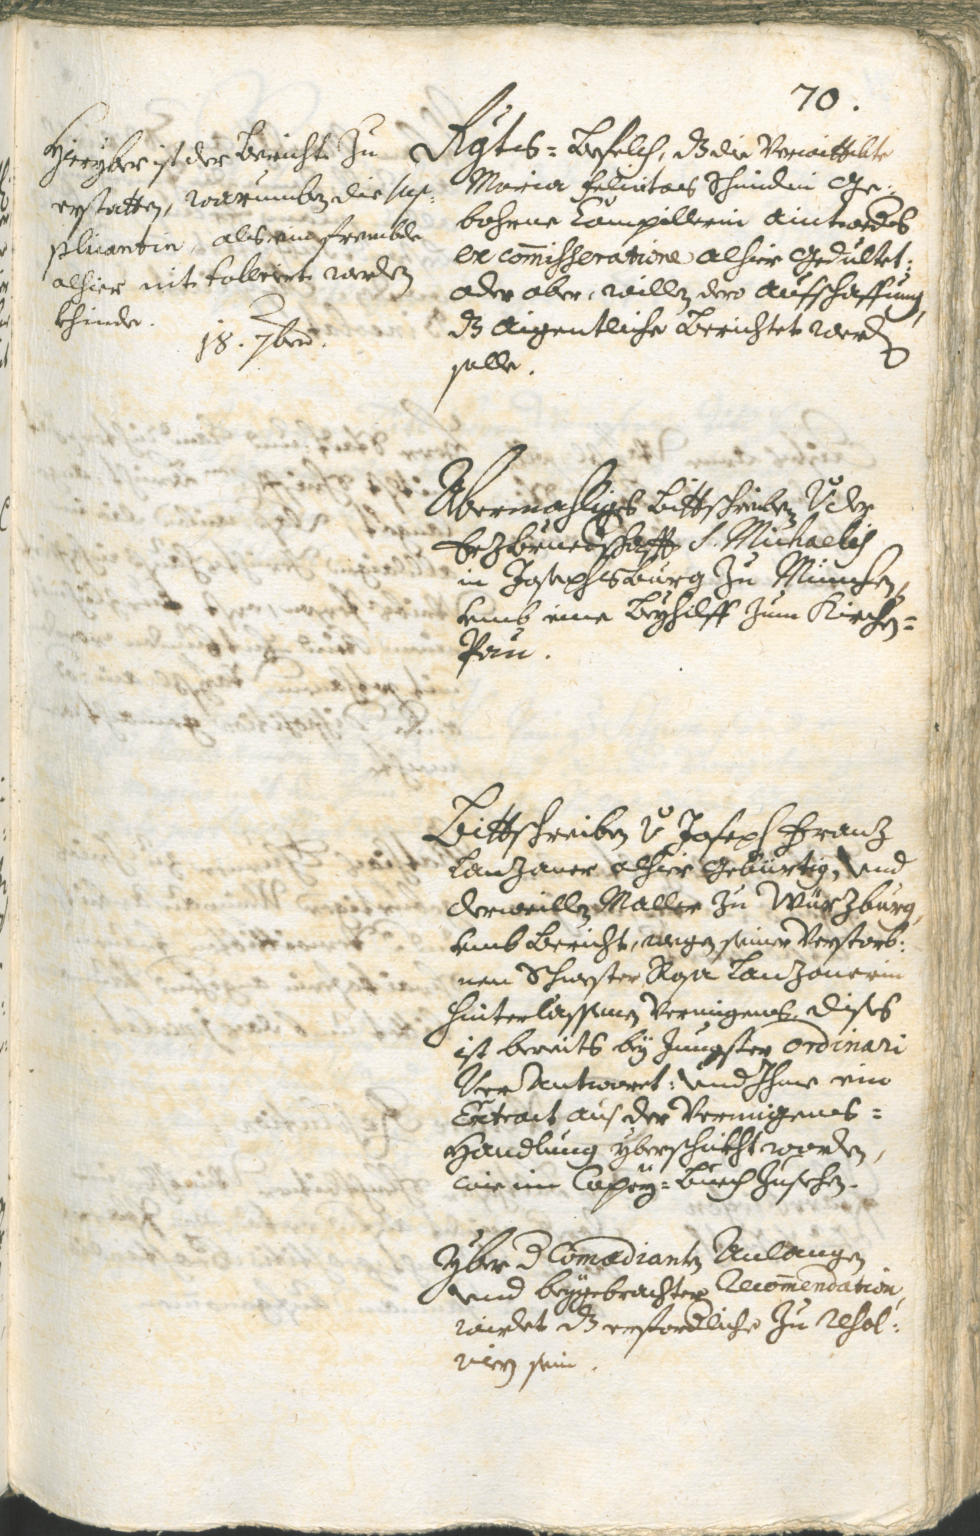 70.
Hieryber ist der Bericht zu
erstatten, warumben die sup-
plicantin, als ein frembde
alhier nit tolleriert werden
khinde.
18. 7ber.
Rgts= Befelch, dz die Verwittibte
Maria Felicitas Schmidin Ge-
bohrne Campillerin aintweders
ex commisseratione alhier gedultet:
oder aber, willen dero Aufschaffung,
dz aigentliche berichtet werden
solle.
Abermahliges Bittschreiben V der
Erzbruederschafft S. Michaelis
in Josephsburg zu München,
umb eine Beyhilff zum Kirchen=
Pau.
Bittschreiben V Joseph Franz
Lanzaner alhier gebürtig, und
derweillen Maller zu Würzburg,
umb Bericht, wegen seiner Verstorb-
nen Schwester Rosa Lanzanerin
hinterlassenen Vermögens. dises
ist bereits bey jungster ordinari
Verantwortet: und Ihme ein
Extract aus der Vermögens=
Handlung yberschickht worden,
wie im Copey=Buech zusehen.
Yber D Comœdianten Anlangen
und beygebrachter Recommendation,
wirdet dz erforderliche zu resol-
viern sein.